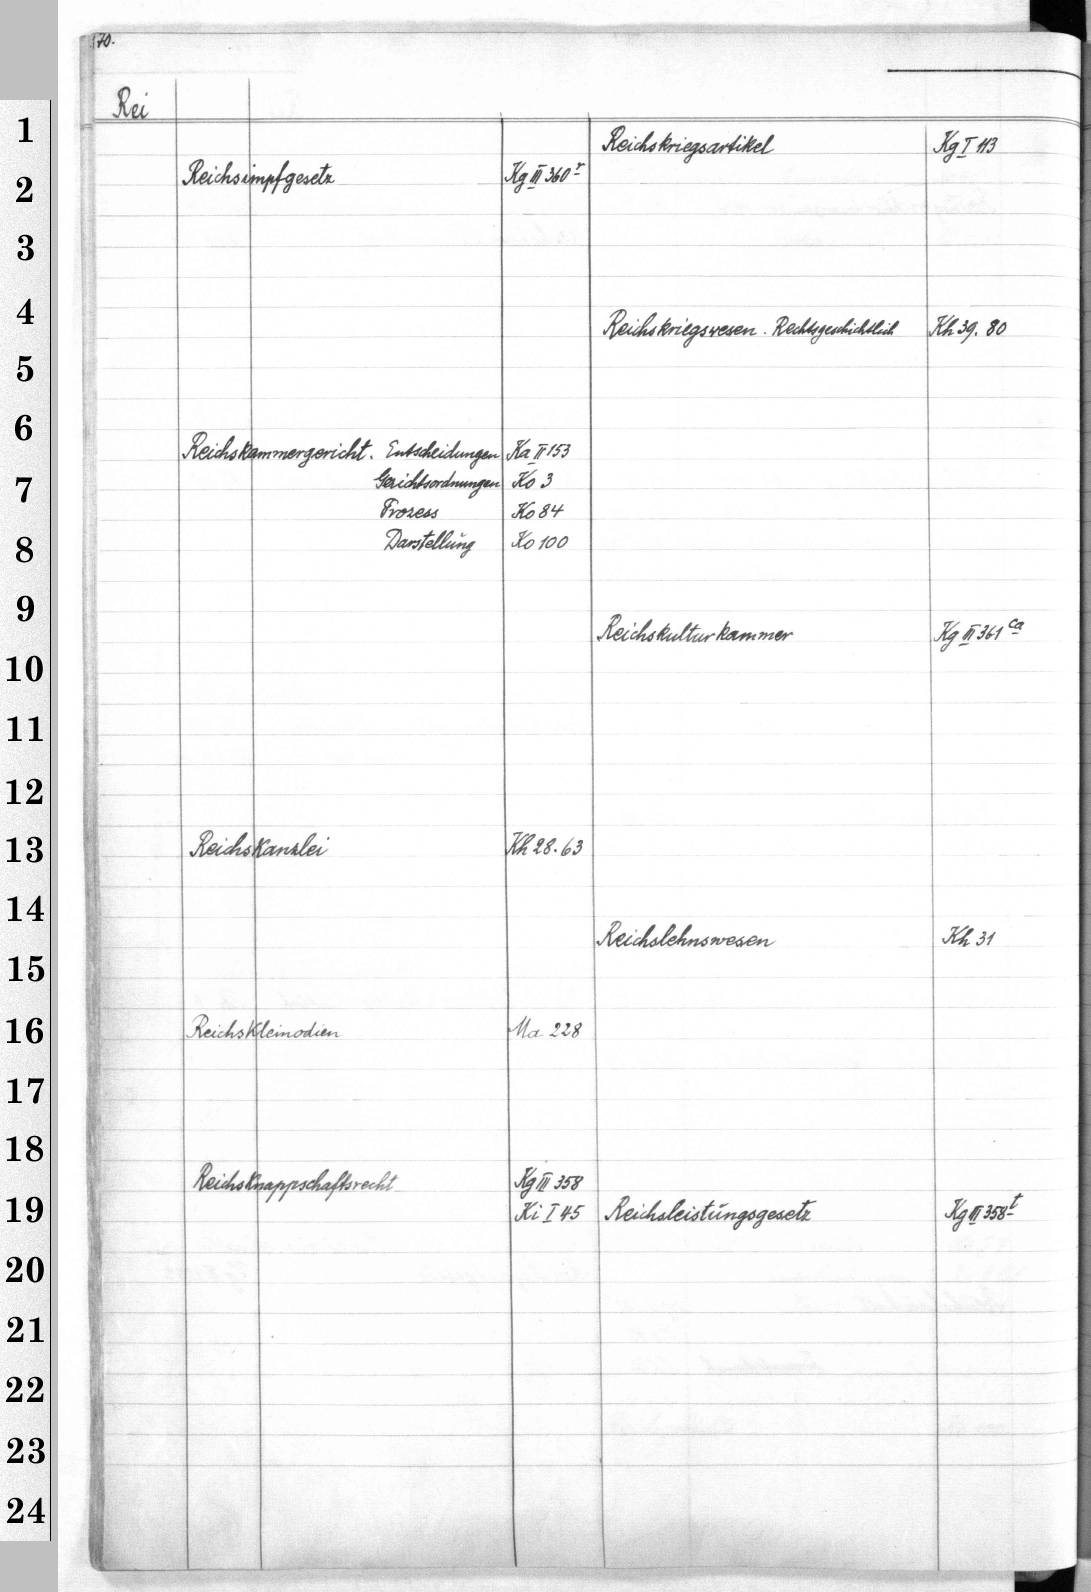 170.
Rei
Reichsimpfgesetz Kg III 360 r
Reichskammergericht. Entscheidungen Ka II 153
Gerichtsordnungen Ko 3
Prozess Ko 84
Darstellung Ko 100
Reichskanzlei Kh 28. 63
Reichskleinodien Ma 228
Reichsknappschaftsrecht Kg III 358
Ki I 45
Reichskriegsartikel Kg I 113
Reichskriegswesen. Rechtsgeschichtlich Kh 39. 80
Reichskulturkammer Kg III 361 ca
Reichslehnswesen Kh 31
Reichsleistungsgesetz Kg III 358 t
1
2
3
4
5
6
7
8
9
10
11
12
13
14
15
16
17
18
19
20
21
22
23
24